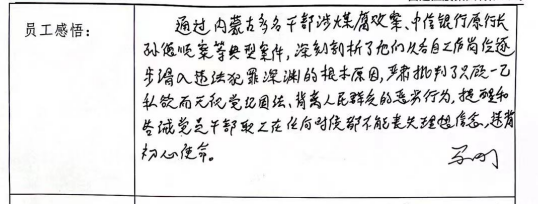 员工感悟:
通过内蒙古多名干部涉煤腐败案、中信银行原行长
孙德顺案等典型案件,深刻剖析了他们从各自工作岗位逐
步滑入违法犯罪深渊的根本原因,严肃批判了只顾一己
私欲而无视党纪国法、背离人民群众的恶劣行为,提醒和
告诫党员干部职工在任何时候都不能丧失理想信念,迷背
初心使命。